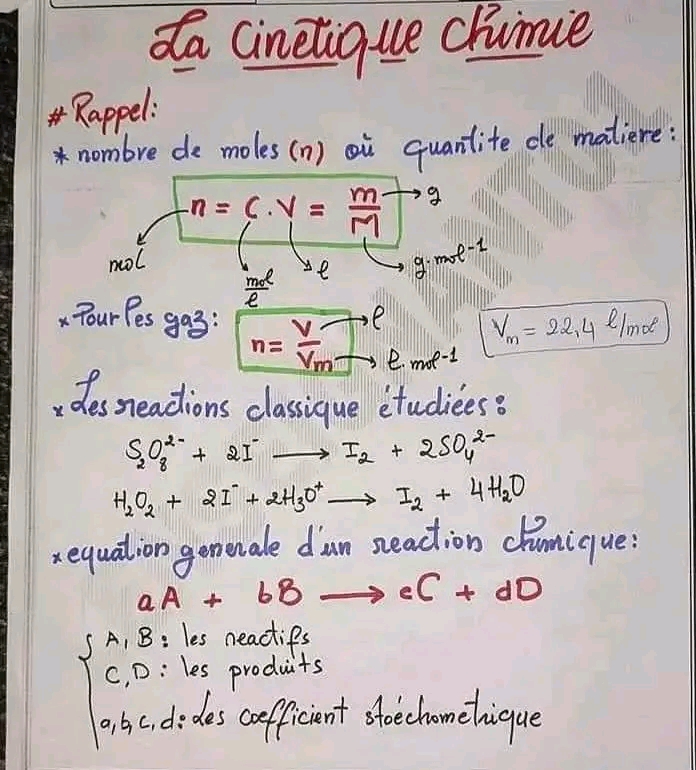 La Cinetique Chimie
# Rappel:
* nombre de moles (n) où quantite de matiere:
n = C.V = m/M
g
mol
mol/l
l
g.mol-1
* Pour les gaz:
n = V/Vm
l
l.mol-1
Vm = 22,4 l/mol
* Les reactions classique étudiées:
S2O8^2- + 2I^- → I2 + 2SO4^2-
H2O2 + 2I^- + 2H3O^+ → I2 + 4H2O
* equation generale d'un reaction chimique:
aA + bB → cC + dD
{ A, B : les reactifs
C, D : les produits
a, b, c, d : Les coefficient stoéchometrique